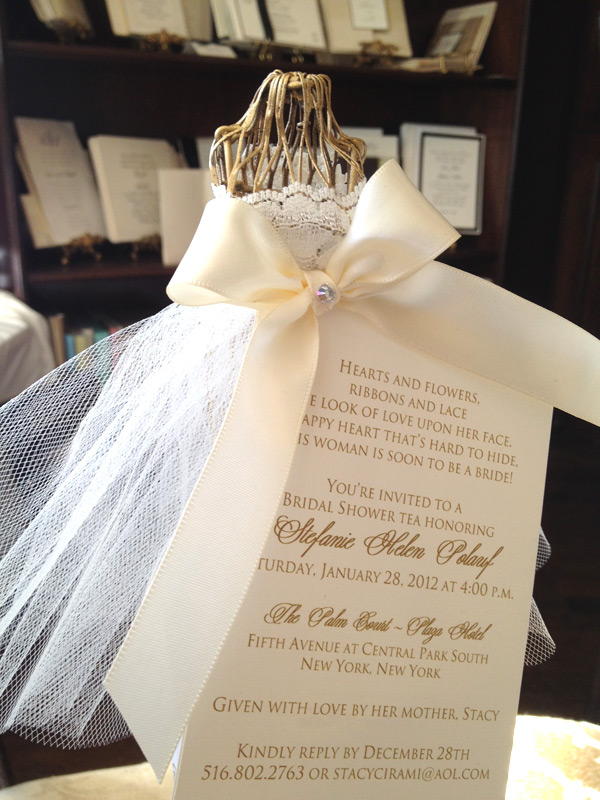 Hearts and flowers,
ribbons and lace
e look of love upon her face.
appy heart that's hard to hide,
is woman is soon to be a bride!
You're invited to a
Bridal Shower tea honoring
Stefanie Helen Polauf
turday, January 28, 2012 at 4:00 p.m.
The Palm Court ~ Plaza Hotel
Fifth Avenue at Central Park South
New York, New York
Given with love by her mother, Stacy
Kindly reply by December 28th
516.802.2763 or stacycirami@aol.com